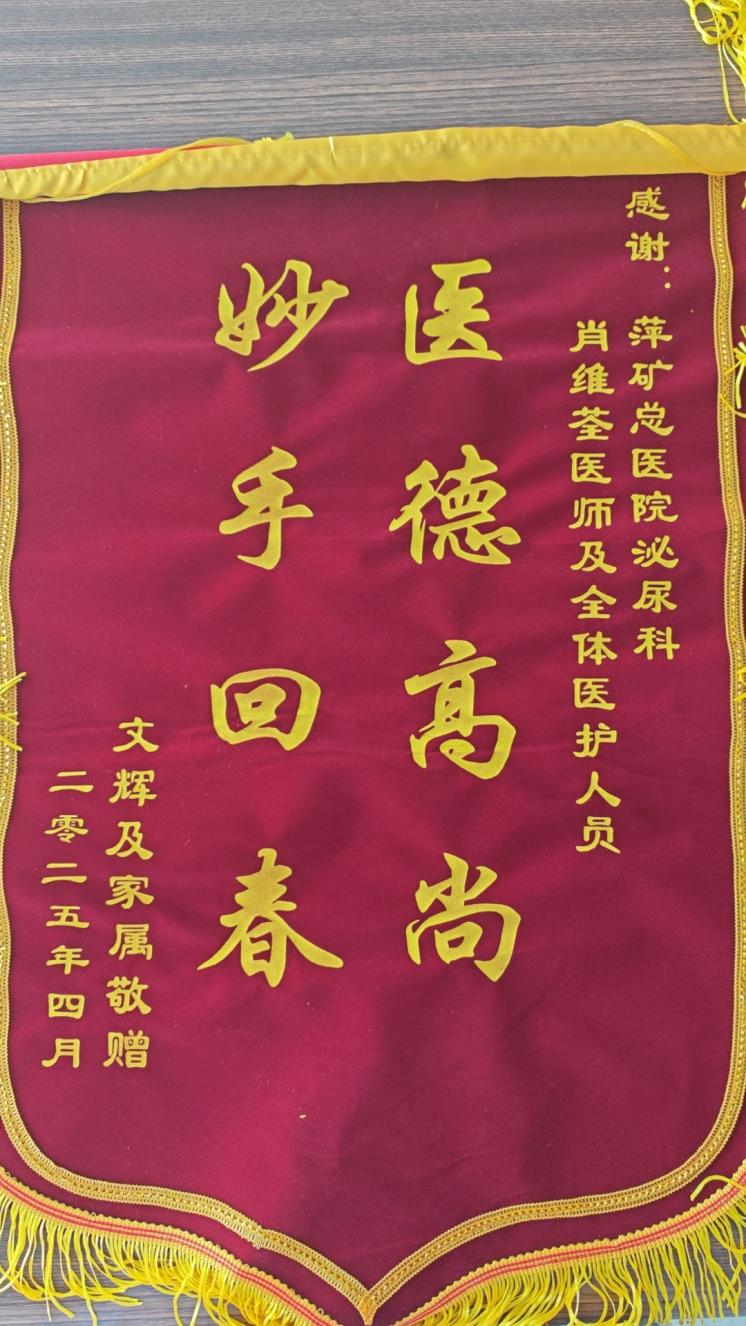 感谢：萍矿总医院泌尿科
肖维荃医师及全体医护人员
医德高尚
妙手回春
文辉及家属敬赠
二零二五年四月